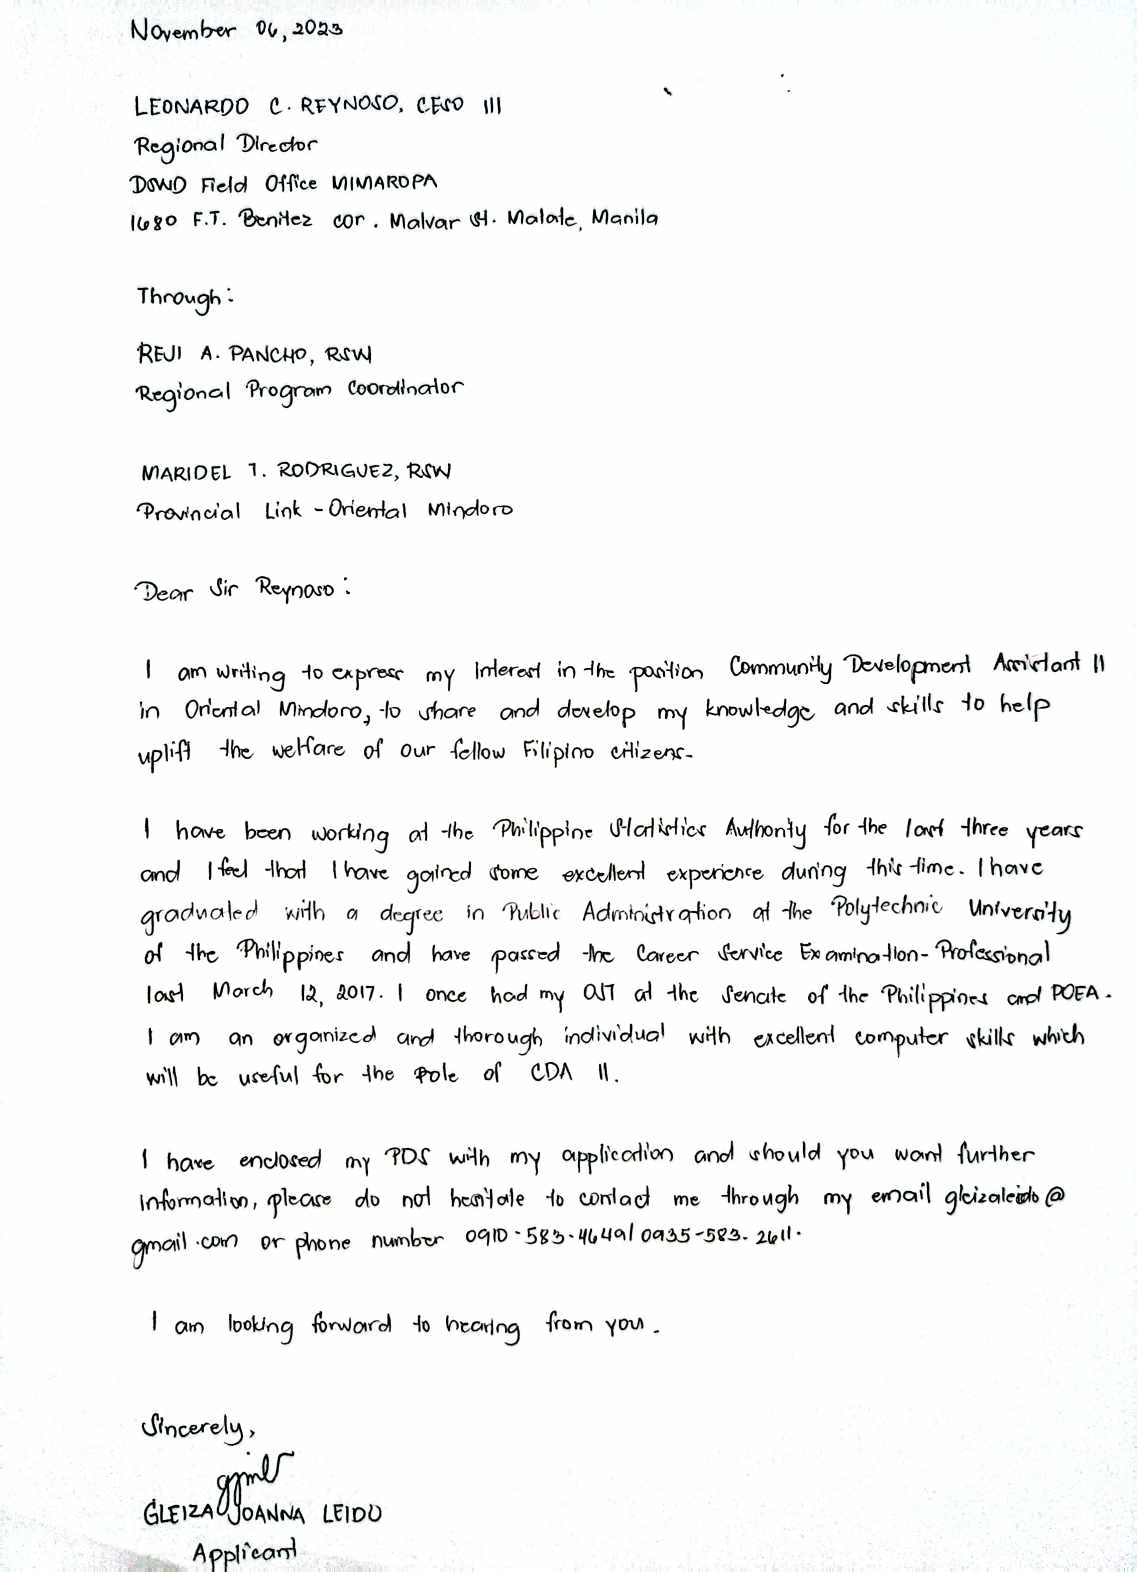 November 06, 2023
LEONARDO C. REYNOSO, CESO III
Regional Director
DSWD Field Office MIMAROPA
1680 F.T. Benitez cor. Malvar St. Malate, Manila
Through:
REJI A. PANCHO, RSW
Regional Program Coordinator
MARIDEL T. RODRIGUEZ, RSW
Provincial Link - Oriental Mindoro
Dear Sir Reynoso:
I am writing to express my interest in the position Community Development Assistant II
in Oriental Mindoro, to share and develop my knowledge and skills to help
uplift the welfare of our fellow Filipino citizens.
I have been working at the Philippine Statistics Authority for the last three years
and I feel that I have gained some excellent experience during this time. I have
graduated with a degree in Public Administration at the Polytechnic University
of the Philippines and have passed the Career Service Examination- Professional
last March 12, 2017. I once had my OJT at the Senate of the Philippines and POEA.
I am an organized and thorough individual with excellent computer skills which
will be useful for the role of CDA II.
I have enclosed my PDS with my application and should you want further
information, please do not hesitate to contact me through my email gleizaleido@
gmail.com or phone number 0910-583-4649/ 0935-583-2611.
I am looking forward to hearing from you.
Sincerely,
GLEIZA JOANNA LEIDO
Applicant